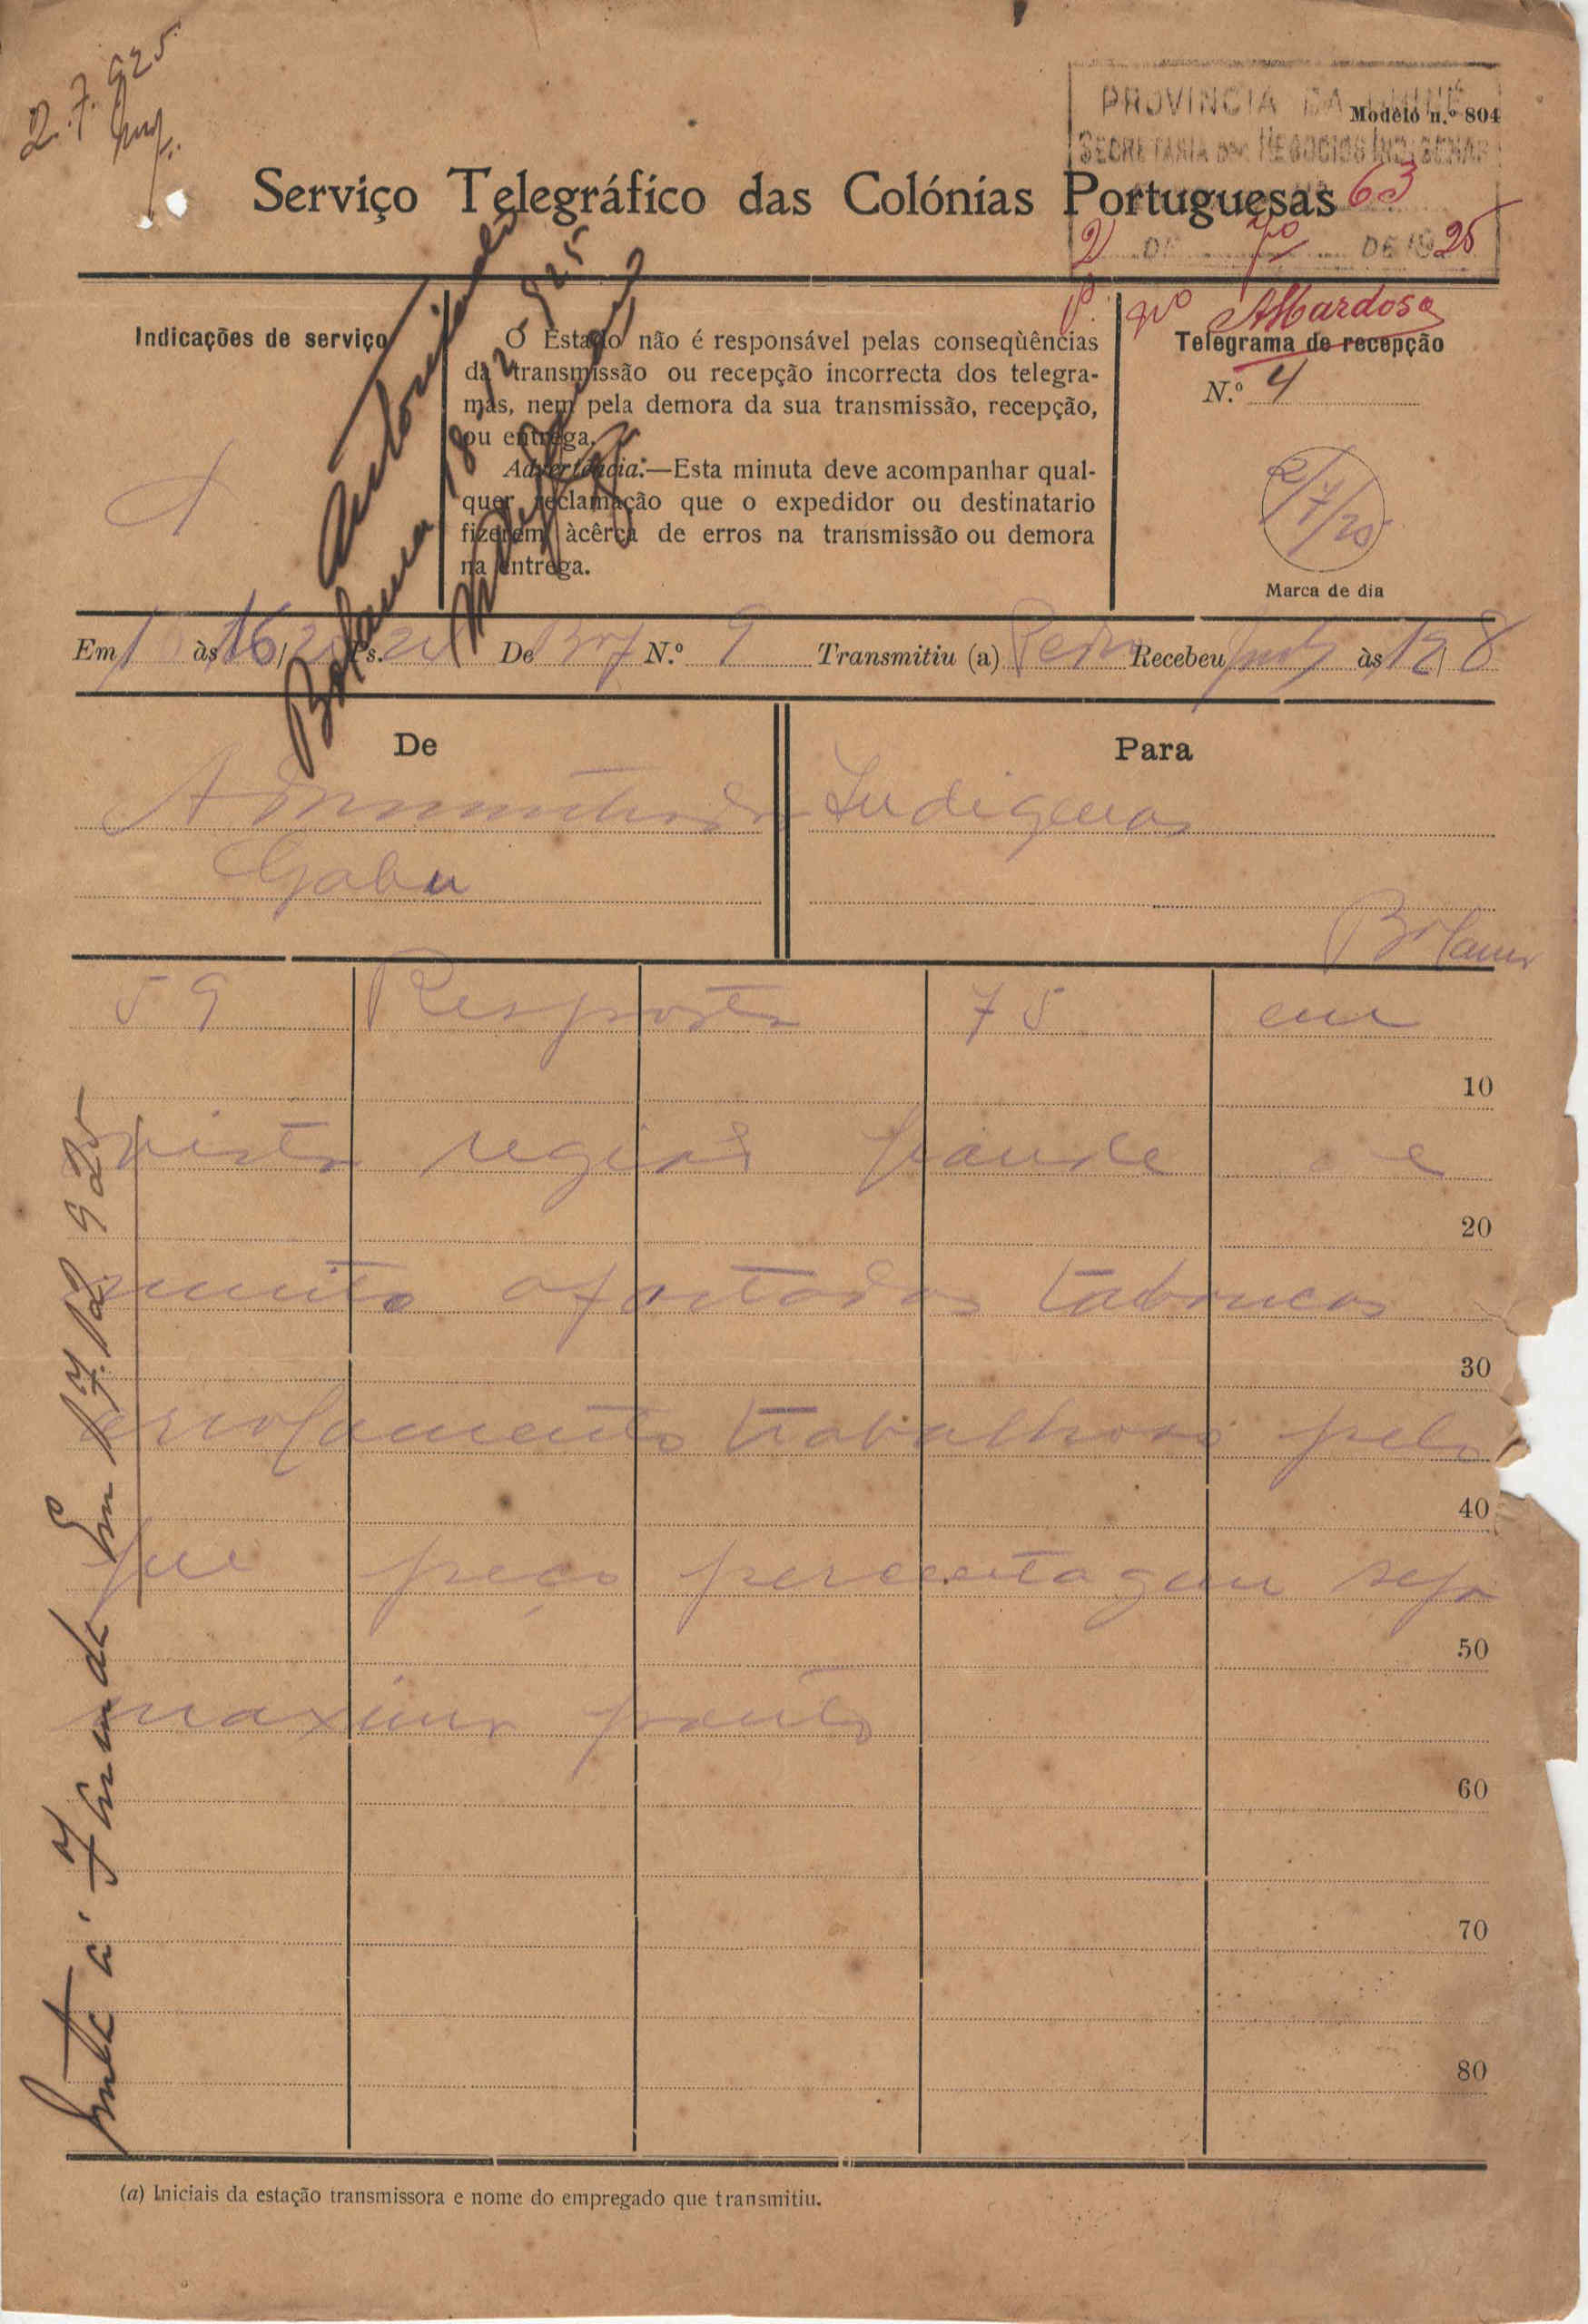 2.7.925
PROVINCIA DA GUINÉ
Modelo n.º 804
SECRETARIA DOS NEGOCIOS INDIGENAS
Serviço Telegráfico das Colónias Portuguesas
63
2 DE 7º DE 1925
Indicações de serviço
O Estado não é responsável pelas conseqùências
da transmissão ou recepção incorrecta dos telegra-
mas, nem pela demora da sua transmissão, recepção,
ou entrega.
Advertência:—Esta minuta deve acompanhar qual-
quer reclamação que o expedidor ou destinatario
fizerem àcêrca de erros na transmissão ou demora
na entrega.
ACardoso
Telegrama de recepção
N.º 4
2/7/25
Marca de dia
Em 1 às 16/20 Ps. 20 De Brf N.º 9 Transmitiu (a) Pedro Recebeu às 12/8
De
Para
Administrador
Gabu
Indigenas
Bolama
59 Resposta 75 em
10
vista região grande e
20
muito afastadas tabancas
30
arrolamento trabalhoso pelo
40
que peço percentagem seja
50
maximo ponto
60
70
80
Em 17.12.925
Bolama 18
(a) Iniciais da estação transmissora e nome do empregado que transmitiu.